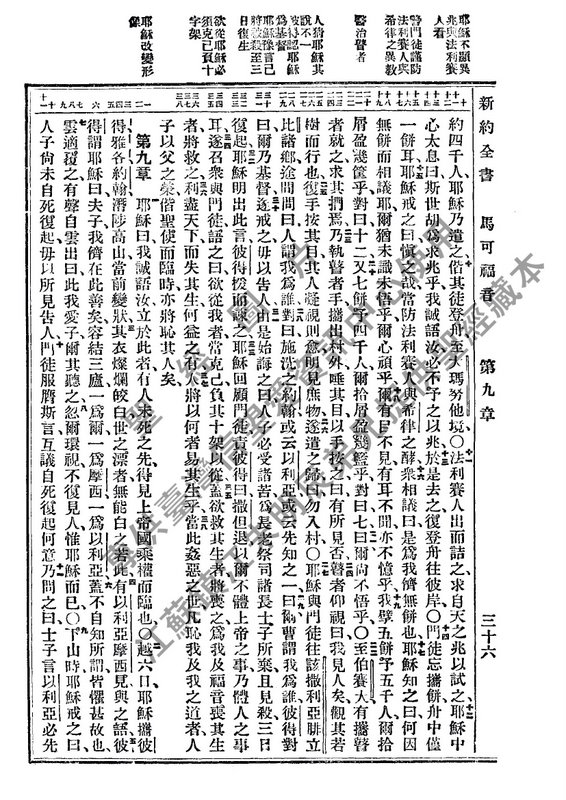 新約全書 馬可福音 第九章 三十六
耶穌不顯異
兆與法利賽
人看
警門徒謹防
法利賽人與
希律之異教
醫治瞽者
人猶耶穌其
說不一
彼得認耶穌
為基督
耶穌預言己
將救殺至三
日復生
欲從耶穌必
須克己負十
字架
耶穌改變形
像
約四千人耶穌乃遣之偕其徒登舟至大瑪努他境〇法利賽人出而詰之求自天之兆以試之耶穌中
心太息曰斯世胡為求兆乎我誠語汝必不予之以兆於是去之復登舟往彼岸〇門徒忘攜餅舟中僅
一餅耳耶穌戒之曰慎之哉當防法利賽人與希律之酵眾相議曰是為我儕無餅也耶穌知之曰何因
無餅而相議耶爾猶未識未悟乎爾心頑乎爾有目不見有耳不聞亦不憶乎我擘五餅予五千人爾拾
屑盈幾筐乎對曰十二又七餅予四千人爾拾屑盈幾籃乎對曰七曰爾尚不悟乎〇至伯賽大有攜瞽
者就之求其捫焉乃執瞽者手攜出村外唾其目以手按之曰有所見否瞽者仰視曰我見人矣觀其若
樹而行也復手按其目其人凝視則愈明見庶物遂遣之歸曰勿入村〇耶穌與門徒往該撒利亞腓立
比諸鄉途間問曰人謂我為誰對曰施洗之約翰或云以利亞或云先知之一曰爾曹謂我為誰彼得對
曰爾乃基督遂戒之毋以告人由是始誨之曰人子必受諸苦為長老祭司諸長士子所棄且見殺三日
復起耶穌明出此言彼得援而諫之耶穌回顧門徒責彼得曰撒但退以爾不體上帝之事乃體人之事
耳遂召眾與門徒語之曰欲從我者當克己負其十架以從蓋欲救其生者將喪之為我及福音喪其生
者將救之利盡天下而失其生何益之有人將以何者易其生乎當此姦惡之世凡恥我及我之道者人
子以父之榮偕聖使而臨時亦將恥其人矣
第九章 耶穌曰我誠語汝立於此者有人未死之先得見上帝國乘權而臨也〇越六日耶穌攜彼
得雅各約翰潛陟高山當前變狀其衣燦爛皎白世之漂者無能白之若此有以利亞摩西見與之語彼
得謂耶穌曰夫子我儕在此善矣容結三廬一為爾一為摩西一為以利亞蓋不自知所謂皆懼甚故也
雲適覆之有聲自雲出曰此我愛子爾其聽之忽爾環視不復見人惟耶穌而已〇下山時耶穌戒之曰
人子尚未自死復起毋以所見告人門徒服膺斯言互議自死復起何意乃問之曰士子言以利亞必先